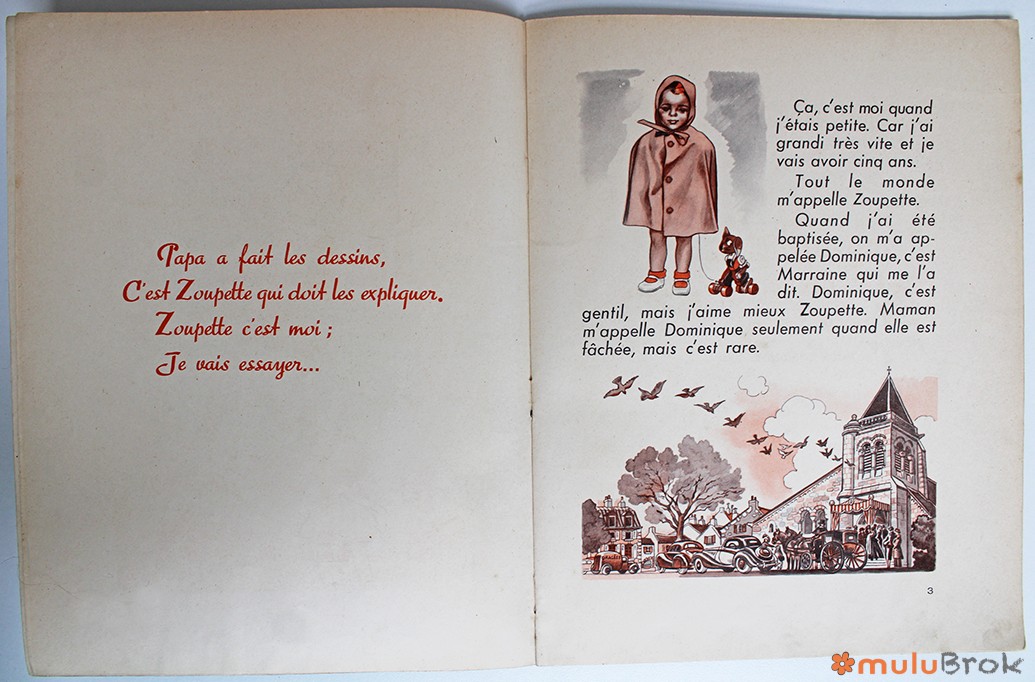 Papa a fait les dessins,
C'est Zoupette qui doit les expliquer.
Zoupette c'est moi ;
Je vais essayer...
Ça, c'est moi quand
j'étais petite. Car j'ai
grandi très vite et je
vais avoir cinq ans.
Tout le monde
m'appelle Zoupette.
Quand j'ai été
baptisée, on m'a ap-
pelée Dominique, c'est
Marraine qui me l'a
dit. Dominique, c'est
gentil, mais j'aime mieux Zoupette. Maman
m'appelle Dominique seulement quand elle est
fâchée, mais c'est rare.
3
muluBrok